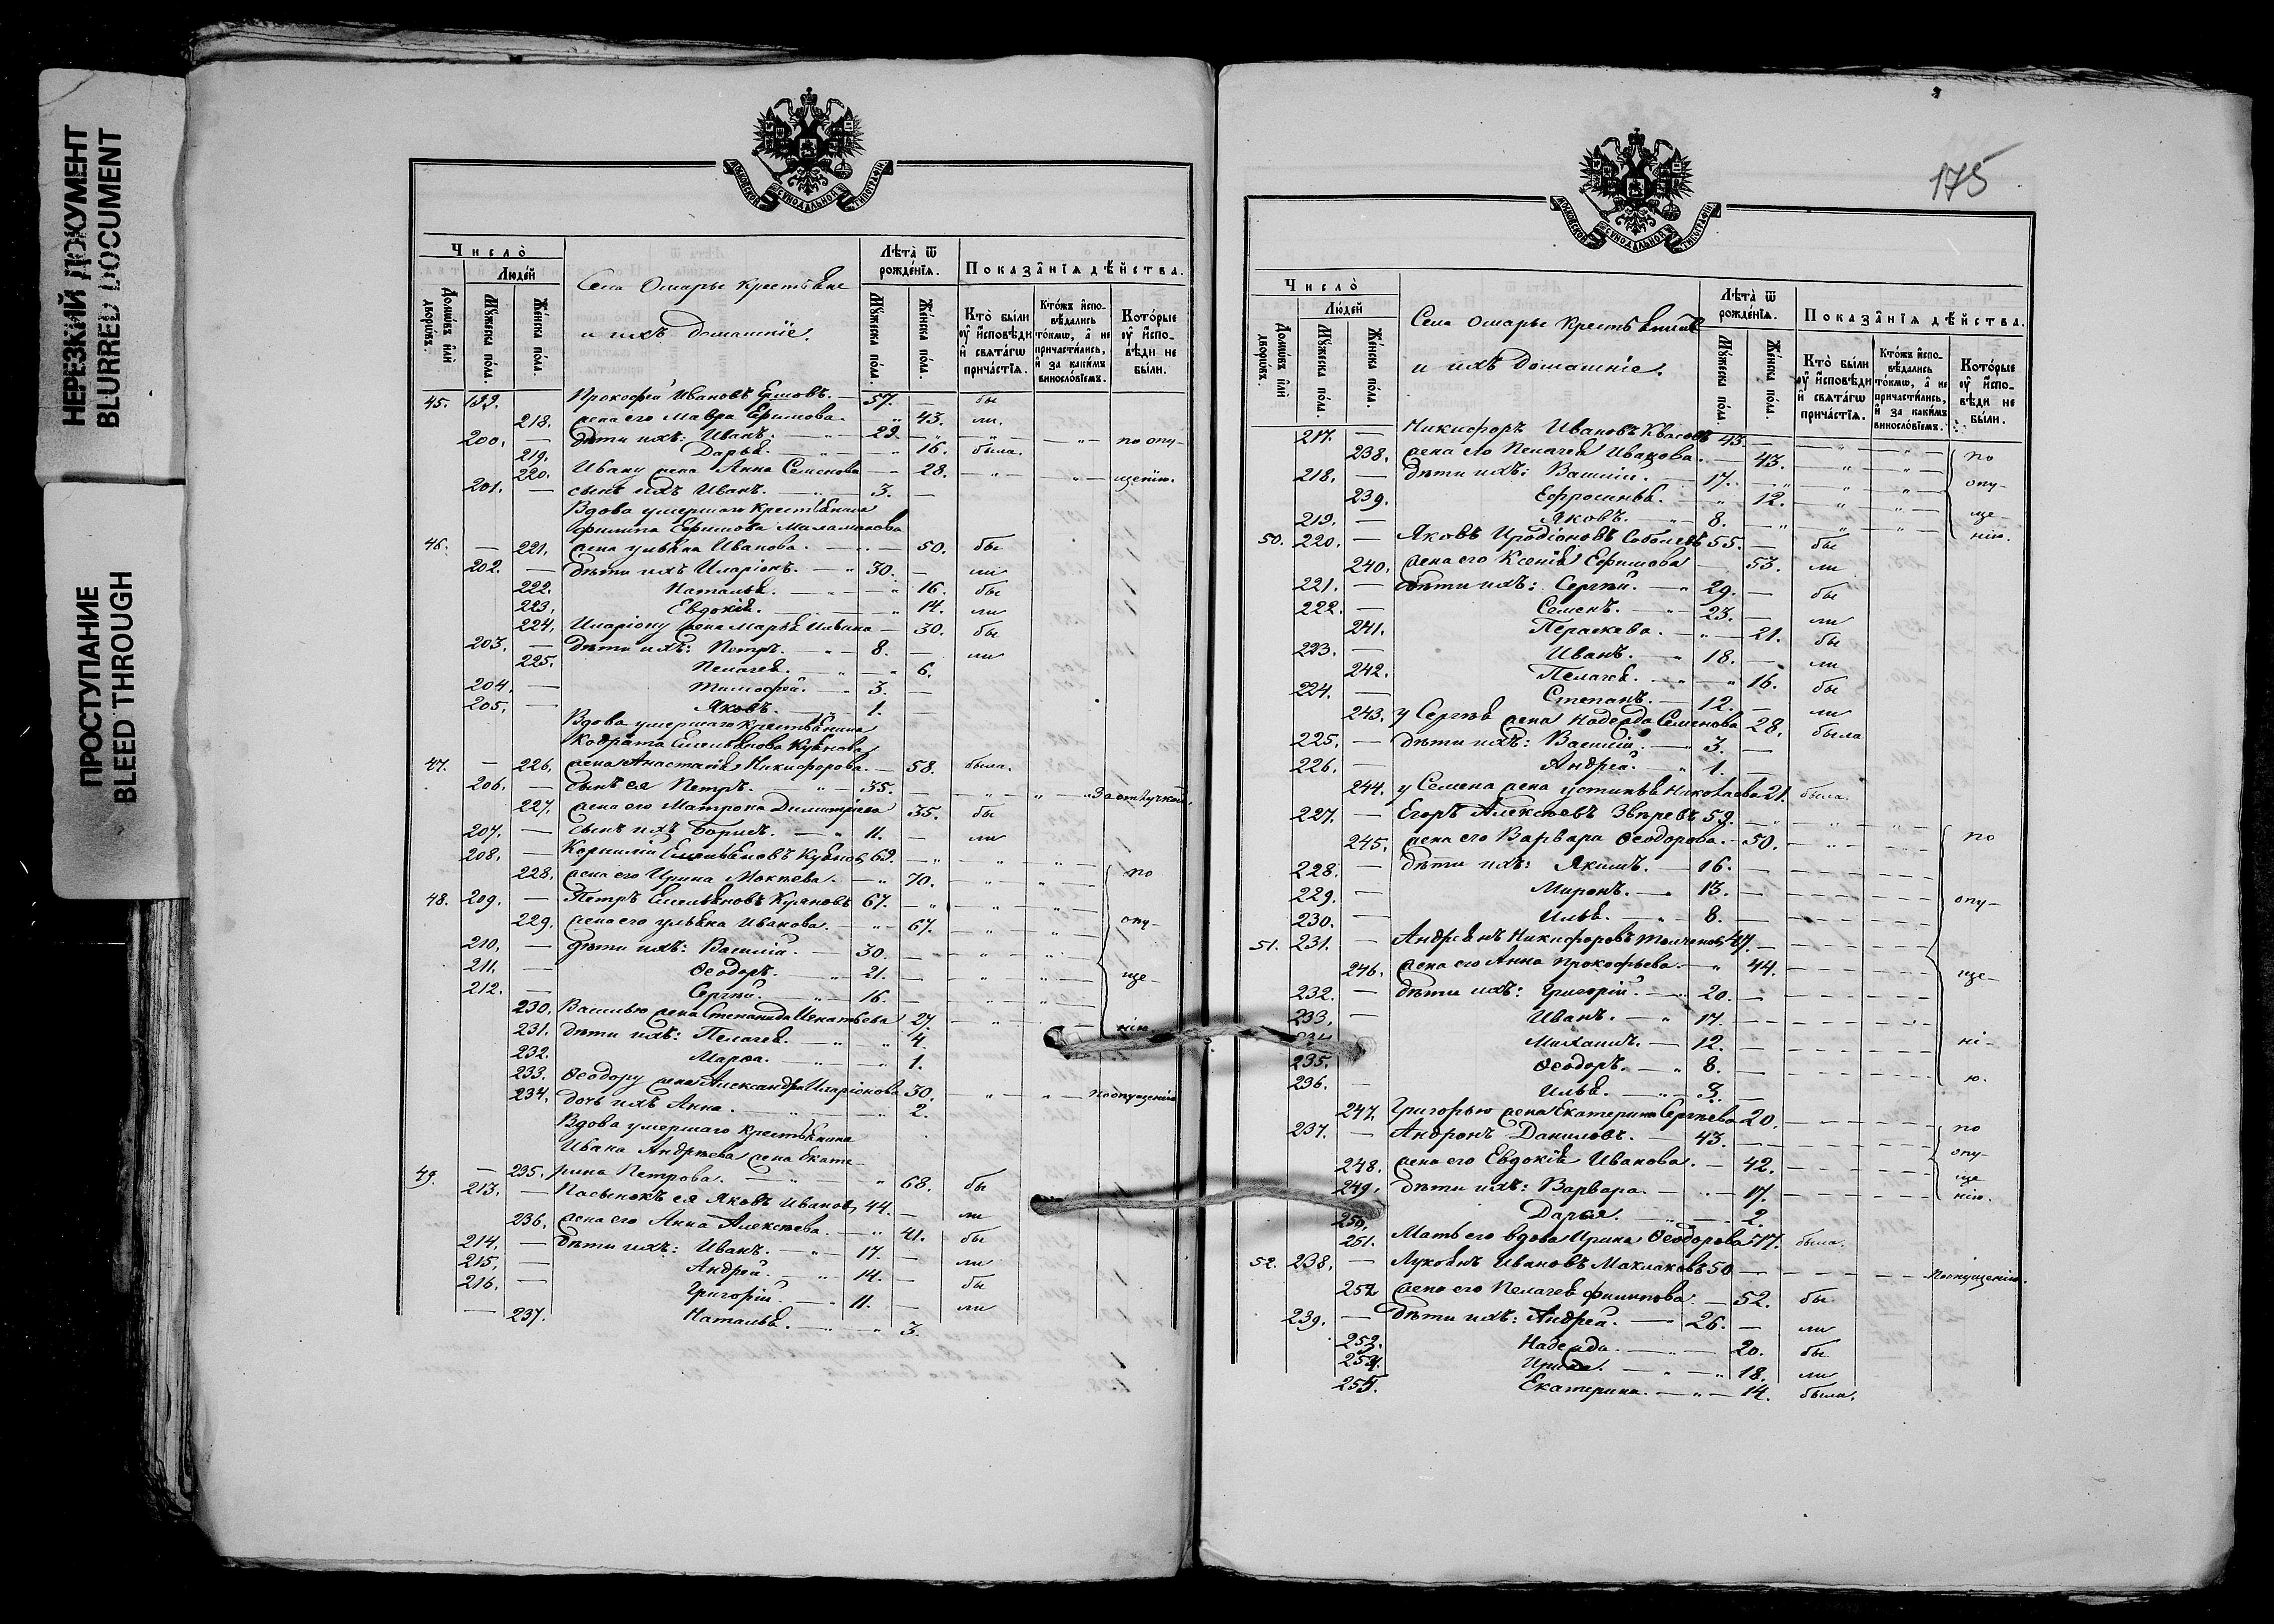 НЕРЕЗКИЙ ДОКУМЕНТ
BLURRED DOCUMENT
ПРОСТУПАНИЕ
BLEED THROUGH
МОСКОВСКОЙ СѴНОДАЛЬНОЙ ТИПОГРАФІИ
Число̀
Люде́й
Домѡ́въ и҆лѝ дворѡ́въ.
Мꙋ́жеска по́ла.
Же́нска по́ла.
Села Омары крестьяне
и ихъ домашніе.
Лѣта̀ ѿ рожде́нїѧ.
Мꙋ́жеска по́ла.
Же́нска по́ла.
Показа̑нїѧ дѣ́йства.
Кто̀ бы́ли ᲂу҆ и҆сповѣ́ди и҆ свѧта́гѡ прича́стїѧ.
Кто́жъ и҆сповѣ́дались то́кмѡ, а҆ не причасти́лись, и҆ за каки́мъ виносло́вїемъ.
Кото́рые ᲂу҆ и҆спо́вѣди не бы́ли.
45. 199. Прокофей Ивановъ Ершовъ. 57. бы
218. жена его Мавра Ефимова. 43. ли.
200. дѣти ихъ: Иванъ. 29. по опу-
219. Дарья. 16. была.
220. Ивану жена Анна Семенова 28. щенію.
201. сынъ ихъ Иванъ. 3.
Вдова умершаго крестьянина
Филипа Ефимова
46. 221. жена Ульяна Иванова. 50. бы
202. дѣти ихъ Иларіонъ. 30. ли
222. Наталья. 16. бы
223. Евдокія. 14. ли
224. Иларіону жена Марья Ильина 30. бы
203. дѣти ихъ: Петръ. 8. ли
225. Пелагея. 6.
204. Тимофей. 3.
205. Яковъ. 1.
Вдова умершаго крестьянина
Кодрата Емельянова Куянова
47. 226. жена Анастасія Никифорова. 58. была.
206. сынъ ея Петръ. 35. За отлучкою.
227. жена его Матрона Димитріева 35. бы
207. сынъ ихъ Борисъ. 11. ли
208. Корнилій Емельяновъ Куяновъ 69.
228. жена его Ирина Мокѣева. 70. по
48. 209. Петръ Емельяновъ Куяновъ 67.
229. жена его Ульяна Иванова. 67. опу-
210. дѣти ихъ: Василій. 30.
211. Ѳеодоръ. 21. ще-
212. Сергѣй. 16.
230. Василью жена Степанида Игнатьева 27. нію.
231. дѣти ихъ: Пелагея. 4.
232. Марѳа. 1.
233. Ѳеодору жена Александра Иларіонова 30. По опущенію
234. дочь ихъ Анна. 2.
Вдова умершаго крестьянина
Ивана Андреева жена Екате-
49. 235. рина Петрова. 68. бы
213. Пасынокъ ея Яковъ Ивановъ 44. ли
236. жена его Анна Алексѣева. 41. бы
214. дѣти ихъ: Иванъ. 17. ли
215. Андрей. 14. бы
216. Григорій. 11. ли
237. Наталья. 3.
175
МОСКОВСКОЙ СѴНОДАЛЬНОЙ ТИПОГРАФІИ
Число̀
Люде́й
Домѡ́въ и҆лѝ дворѡ́въ.
Мꙋ́жеска по́ла.
Же́нска по́ла.
Села Омары крестьяне
и ихъ домашніе.
Лѣта̀ ѿ рожде́нїѧ.
Мꙋ́жеска по́ла.
Же́нска по́ла.
Показа̑нїѧ дѣ́йства.
Кто̀ бы́ли ᲂу҆ и҆сповѣ́ди и҆ свѧта́гѡ прича́стїѧ.
Кто́жъ и҆сповѣ́дались то́кмѡ, а҆ не причасти́лись, и҆ за каки́мъ виносло́вїемъ.
Кото́рые ᲂу҆ и҆спо́вѣди не бы́ли.
217. Никифоръ Ивановъ Квасовъ 43.
238. жена его Пелагея Иванова. 43. по
218. дѣти ихъ: Василій. 17. опу-
239. Ефросинья. 12. ще-
219. Яковъ. 8. нію.
50. 220. Яковъ Иродіоновъ Соболевъ 55. бы
240. жена его Ксенія Ефимова 53. ли
221. дѣти ихъ: Сергѣй. 29. бы
222. Семенъ. 23. ли
241. Параскева. 21. бы
223. Иванъ. 18. ли
242. Пелагея. 16. бы
224. Степанъ. 12. ли
243. у Сергѣя жена Надежда Семенова 28. была
225. дѣти ихъ: Василій. 3.
226. Андрей. 1.
244. у Семена жена Устинья Николаева 21. была.
227. Егоръ Алексѣевъ Звѣревъ 59.
245. жена его Варвара Ѳеодорова. 50. по
228. дѣти ихъ: Якимъ. 16.
229. Миронъ. 13. опу-
230. Илья. 8.
51. 231. Андреянъ Никифоровъ 47.
246. жена его Анна Прокофьева. 44. ще-
232. дѣти ихъ: Григорій. 20.
233. Иванъ. 17.
234. Михаилъ. 12. ні-
235. Ѳеодоръ. 8.
236. Илья. 3. ю.
247. Григорью жена Екатерина Сергѣева 20.
237. Андронъ Даниловъ. 43. по
248. жена его Евдокія Иванова. 42. опу-
249. дѣти ихъ: Варвара. 17. ще
250. Дарья. 2. нію.
251. Мать его вдова Ирина Ѳеодорова 77. была.
52. 238. Лукоянъ Ивановъ Маклаковъ 50 По опущенію.
252 жена его Пелагея Филипова. 52. бы
239. дѣти ихъ: Андрей. 26. ли
253. Надежда. 20. бы
254. Ирина. 18. ли
255. Екатерина. 14. была.